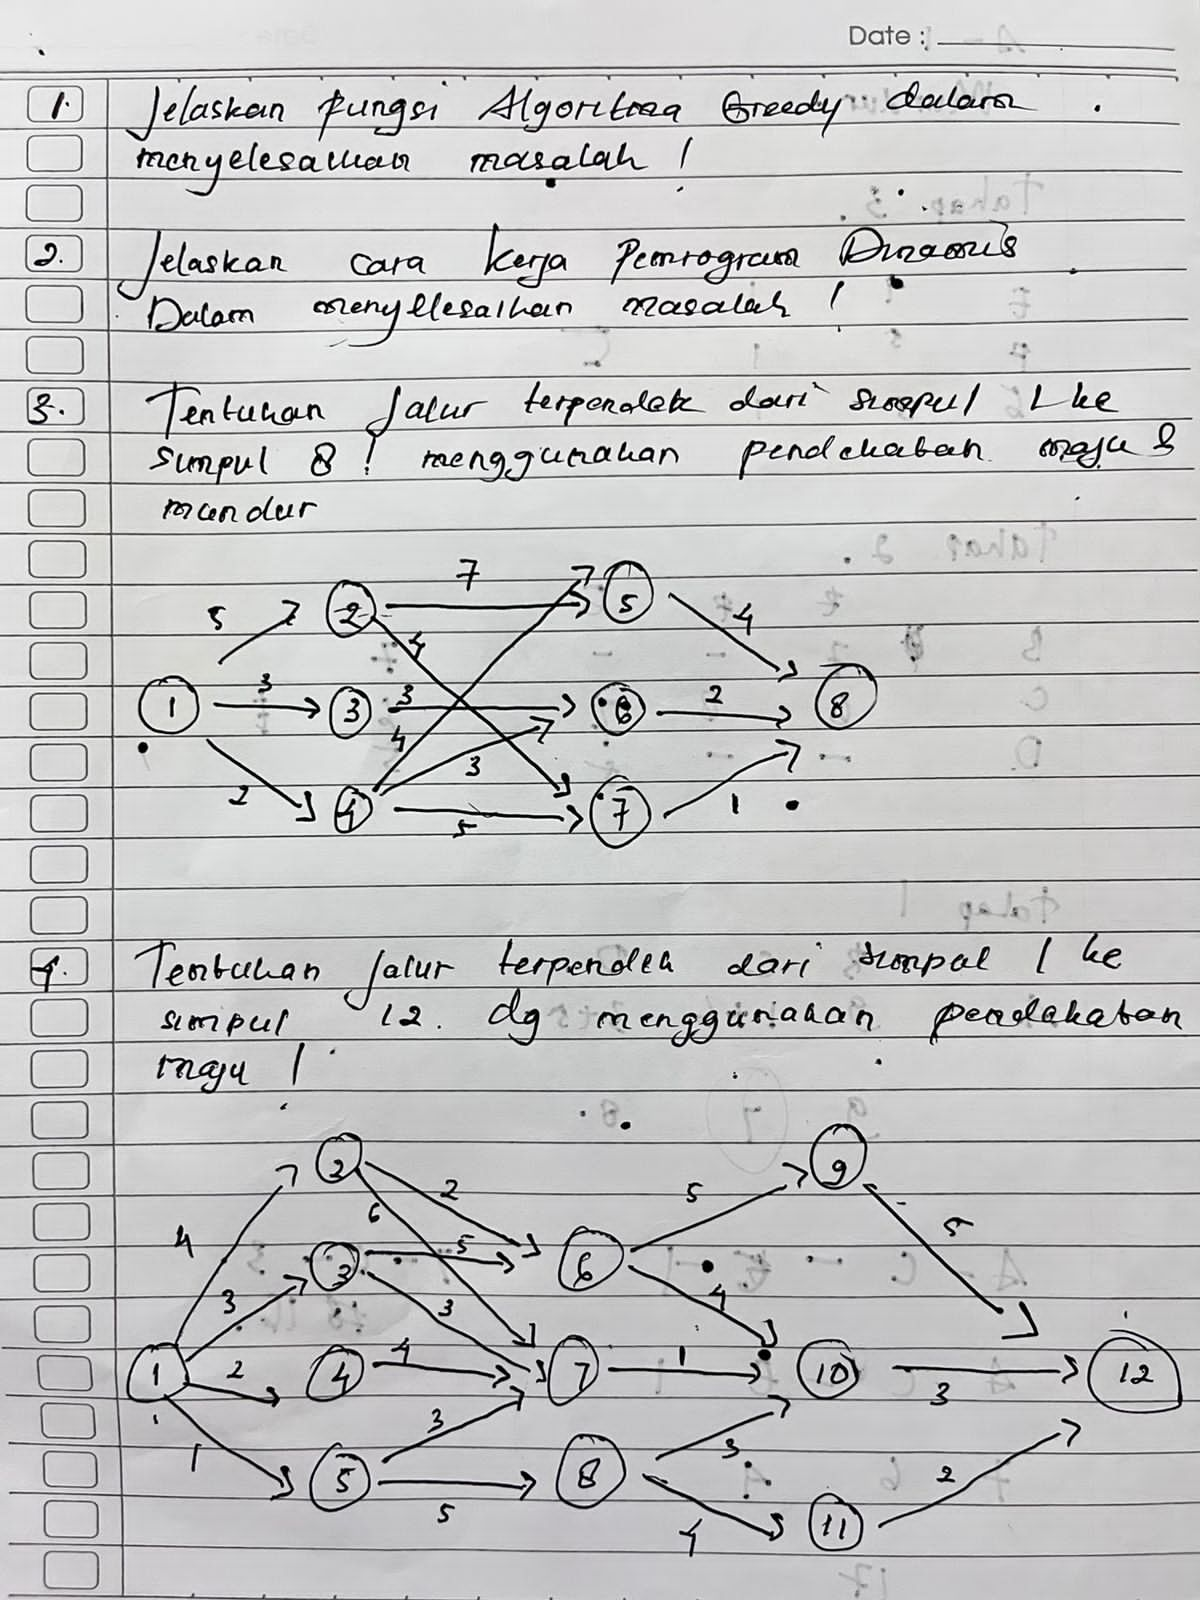 Date :
1. Jelaskan fungsi Algoritma Greedy dalam
menyelesaikan masalah !
2. Jelaskan cara kerja Pemrogram Dinamis
Dalam menyelesaikan masalah !
3. Tentukan Jalur terpendek dari simpul 1 ke
simpul 8 ! menggunakan pendekatan maju &
mundur
7
5 2 5 4
4
1 3 3 3 6 2 8
4
3
2 4 5 7 1
4. Tentukan Jalur terpendek dari simpul 1 ke
simpul 12. dg menggunakan pendekatan
maju !
2 9
2 5
4 6 5
3 5 6
3 3 4
1 2 4 4 7 1 10 12
3 3
1 5 8 3 2
5
4 11